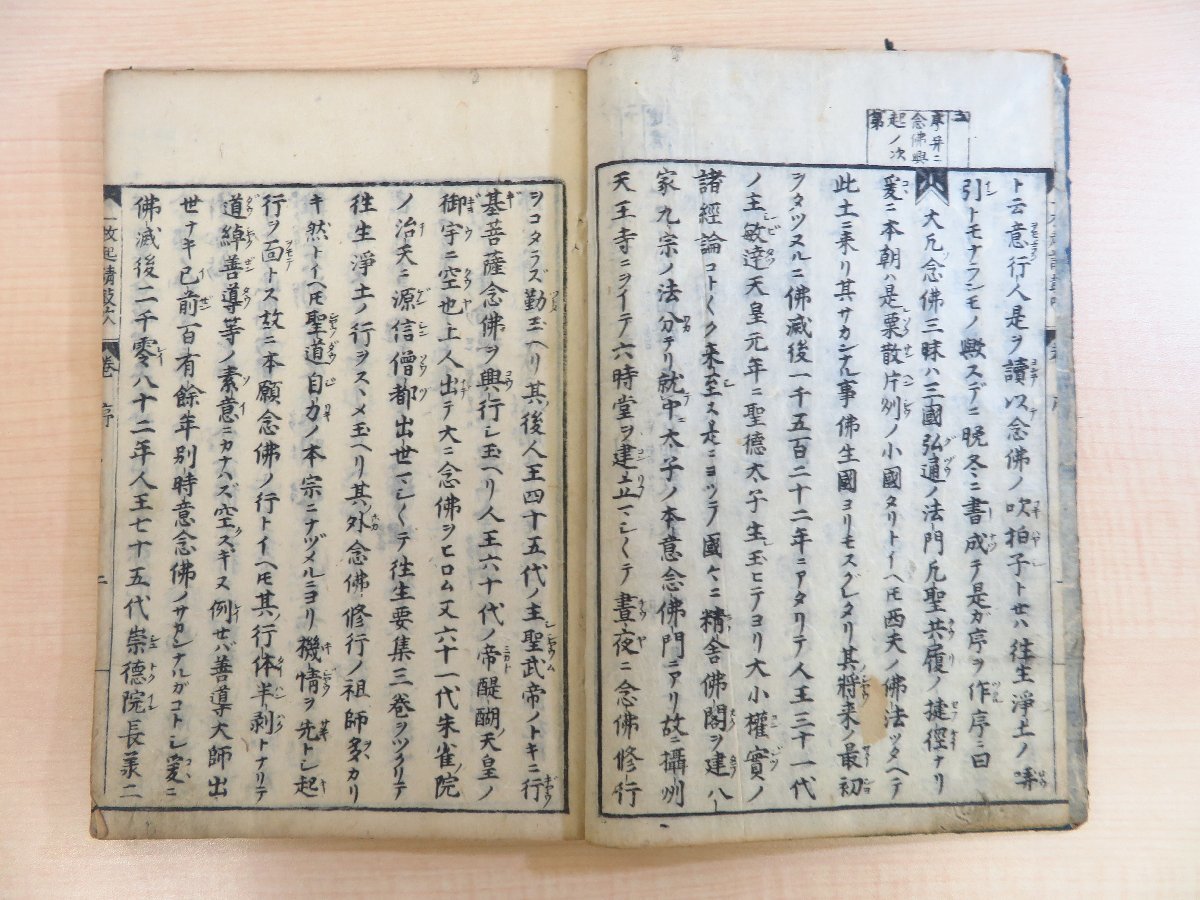 ト云意行人是ヲ讀以念佛ノ吹拍子ト世バ往生淨土ノ
引トモナランモノ歟スデニ晩冬ニ書成テ是ガ序ヲ作序ニ曰
序并ニ
念佛興
起ノ次
第
大凡念佛三昧ハ三國弘通ノ法門凡聖共履ノ捷徑ナリ
爰ニ本朝ハ是粟散片列ノ小國タリトイヘ𪜈西天ノ佛法ツタヘテ
此土ニ来リ其サカンナル事佛生國ヨリモスグレタリ其將来ノ最初
ヲタヅヌルニ佛滅後一千五百二十二年ニアタリテ人王三十一代
ノ主敏達天皇元年ニ聖德太子生玉ヒテヨリ大小權實ノ
諸經論コト〱ク来至ス是ニヨツテ國々ニ精舎佛閣ヲ建八
家九宗ノ法分テリ就中太子ノ本意念佛門ニアリ故ニ攝州
天王寺ニヲイテ六時堂ヲ建立マシ〱テ晝夜ニ念佛修行
ヲコタラズ勤玉ヘリ其後人王四十五代ノ主聖武帝ノトキニ行
基菩薩念佛ヲ興行シ玉ヘリ人王六十代ノ帝醍醐天皇ノ
御宇ニ空也上人出テ大ニ念佛ヲヒロム又六十一代朱雀院
ノ治天ニ源信僧都出世マシ〱テ往生要集三巻ヲツクリテ
往生淨土ノ行ヲスヽメ玉ヘリ其外念佛修行ノ祖師多カリ
キ然トイヘ𪜈聖道自力ノ本宗ニナヅメルニヨリ機情ヲ先トシ起
行ヲ面トス故ニ本願念佛ノ行トイヘ𪜈其行体半剥トナリテ
道綽善導等ノ素意ニカナハズ空スギキヌ例セバ善導大師出
世ナキ已前百有餘年別時意念佛ノサカンナルガコトシ爰ニ
佛滅後二千零八十二年人王七十五代崇德院長羕二
巻一 序